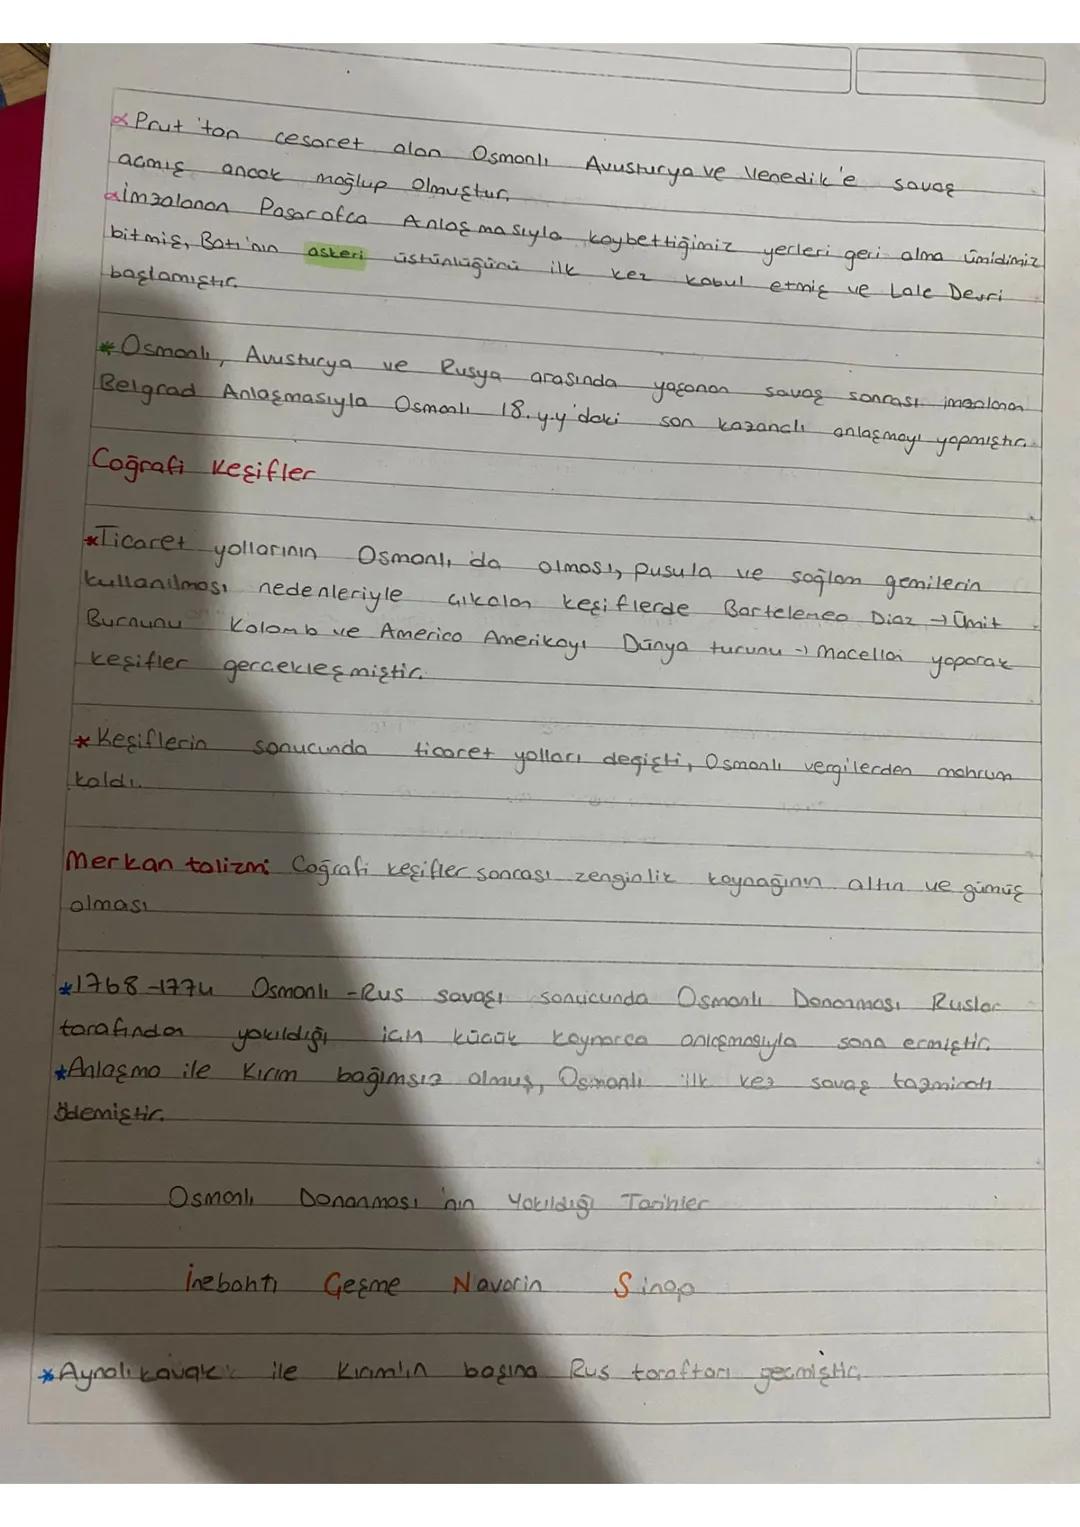 Prut'tan cesaret alan Osmanlı Avusturya ve Venedik'e savaş
açmış ancak mağlup olmuştur.
İmzalanan Pasarofça Anlaşmasıyla kaybettiğimiz yerleri geri alma ümidimiz
bitmiş, Batı'nın askeri üstünlüğünü ilk kez kabul etmiş ve Lale Devri
başlamıştır.
* Osmanlı, Avusturya ve Rusya arasında yaşanan savaş sonrası imzalanan
Belgrad Anlaşmasıyla Osmanlı 18. y.y'daki son kazançlı anlaşmayı yapmıştır.
Coğrafi Keşifler
* Ticaret yollarının Osmanlı'da olması, pusula ve sağlam gemilerin
kullanılması nedenleriyle çıkalan keşiflerde Bartelemeo Diaz → Ümit
Burnunu Kolomb ve Americo Amerikayı Dünya turunu → Macellan yaparak
keşifler gerçekleşmiştir.
* Keşiflerin sonucunda ticaret yolları değişti, Osmanlı vergilerden mahrum
kaldı.
Merkantalizm: Coğrafi keşifler sonrası zenginlik kaynağının altın ve gümüş
olması
* 1768-1774 Osmanlı-Rus savaşı sonucunda Osmanlı Donanması Ruslar
tarafından yakıldığı için küçük kaynarca anlaşmasıyla sona ermiştir.
* Anlaşma ile Kırım bağımsız olmuş, Osmanlı ilk kez savaş tazminatı
ödemiştir.
Osmanlı Donanması'nın Yakıldığı Tarihler
İnebahtı Çeşme Navarin Sinop
* Aynalıkavak ile Kırım'ın başına Rus taraftarı geçmiştir.